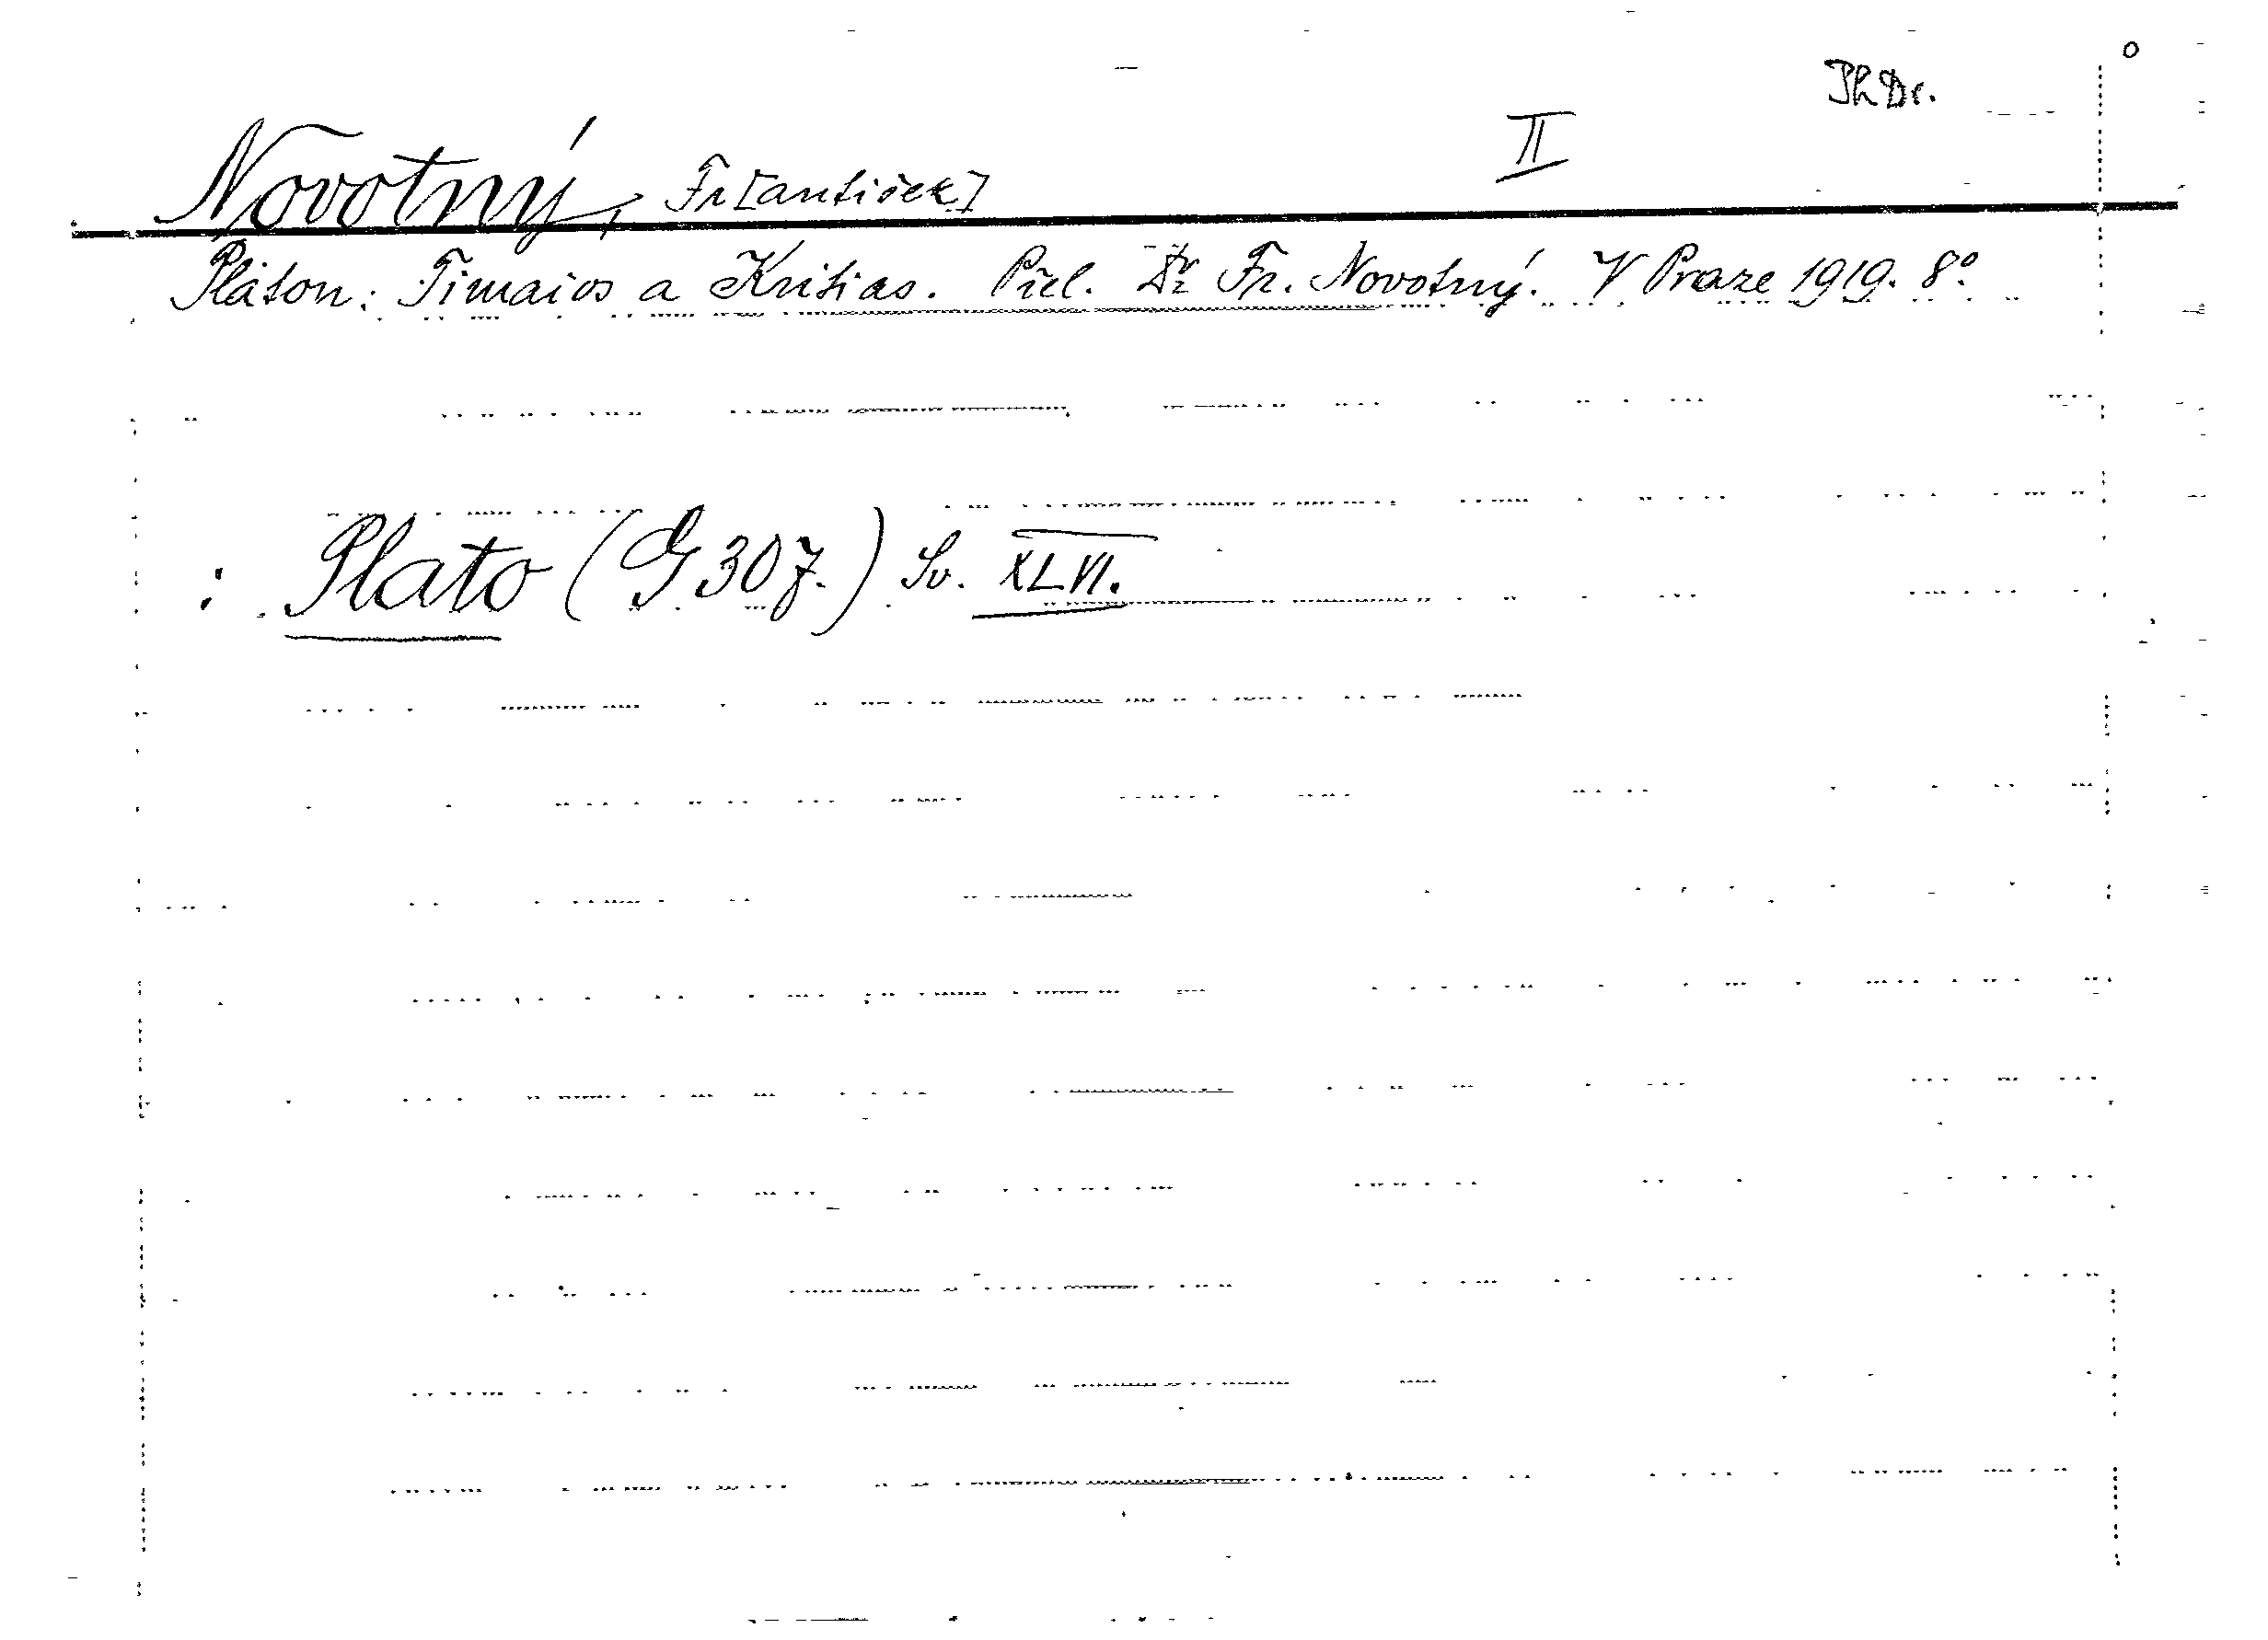 PhDr.
II
Novotný, Fr[antišek]
Platon: Timaios a Kritias. Přel. Dr Fr. Novotný. V Praze 1919. 8°.
: Plato (G 307.) Sv. XLVI.